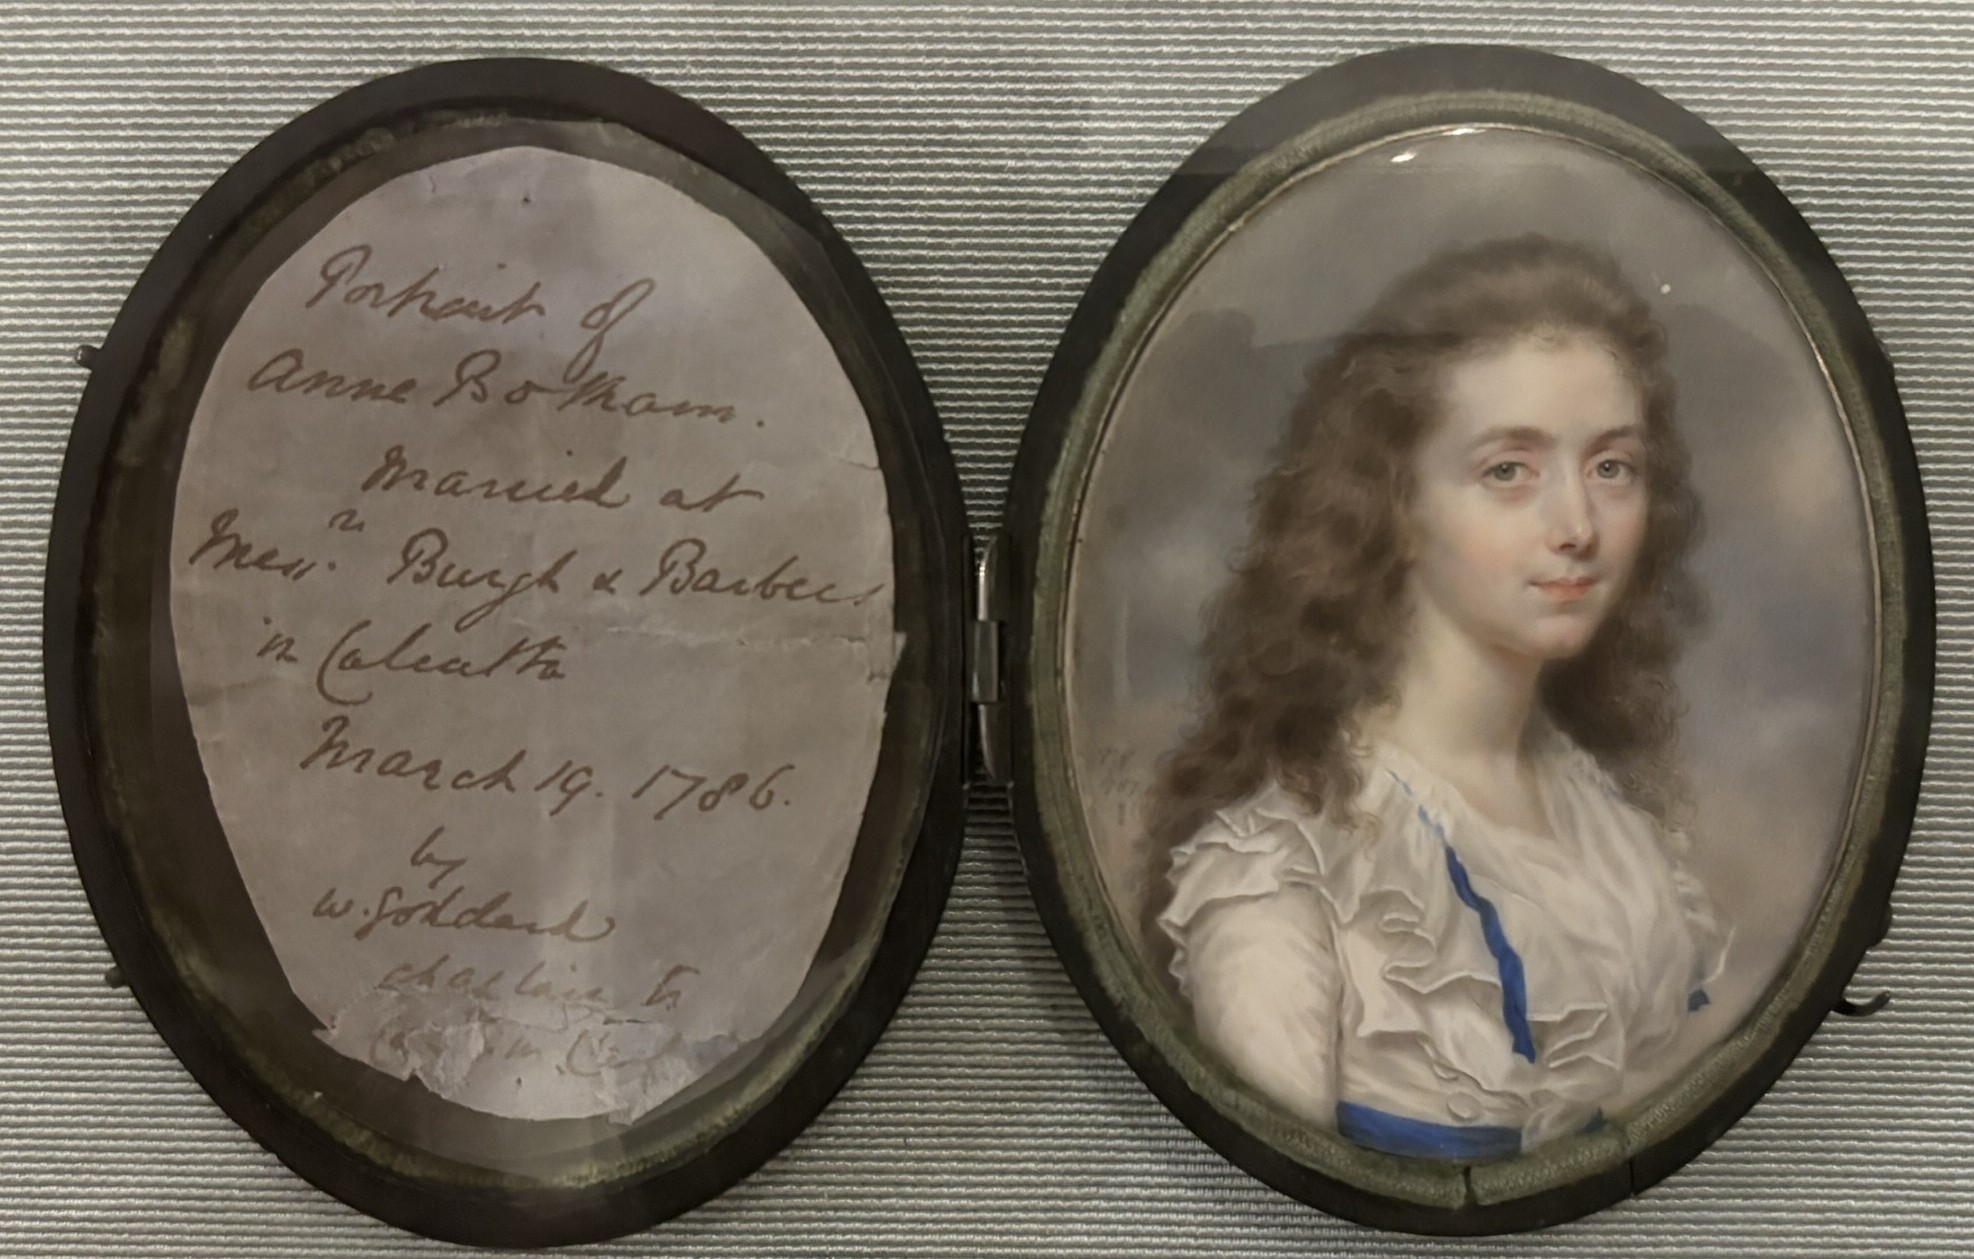 Portrait of
Anne Botham.
Married at
Messrs. Burgh & Barbers
in Calcutta
March 19. 1786.
by
W. Goddard
chaplain to